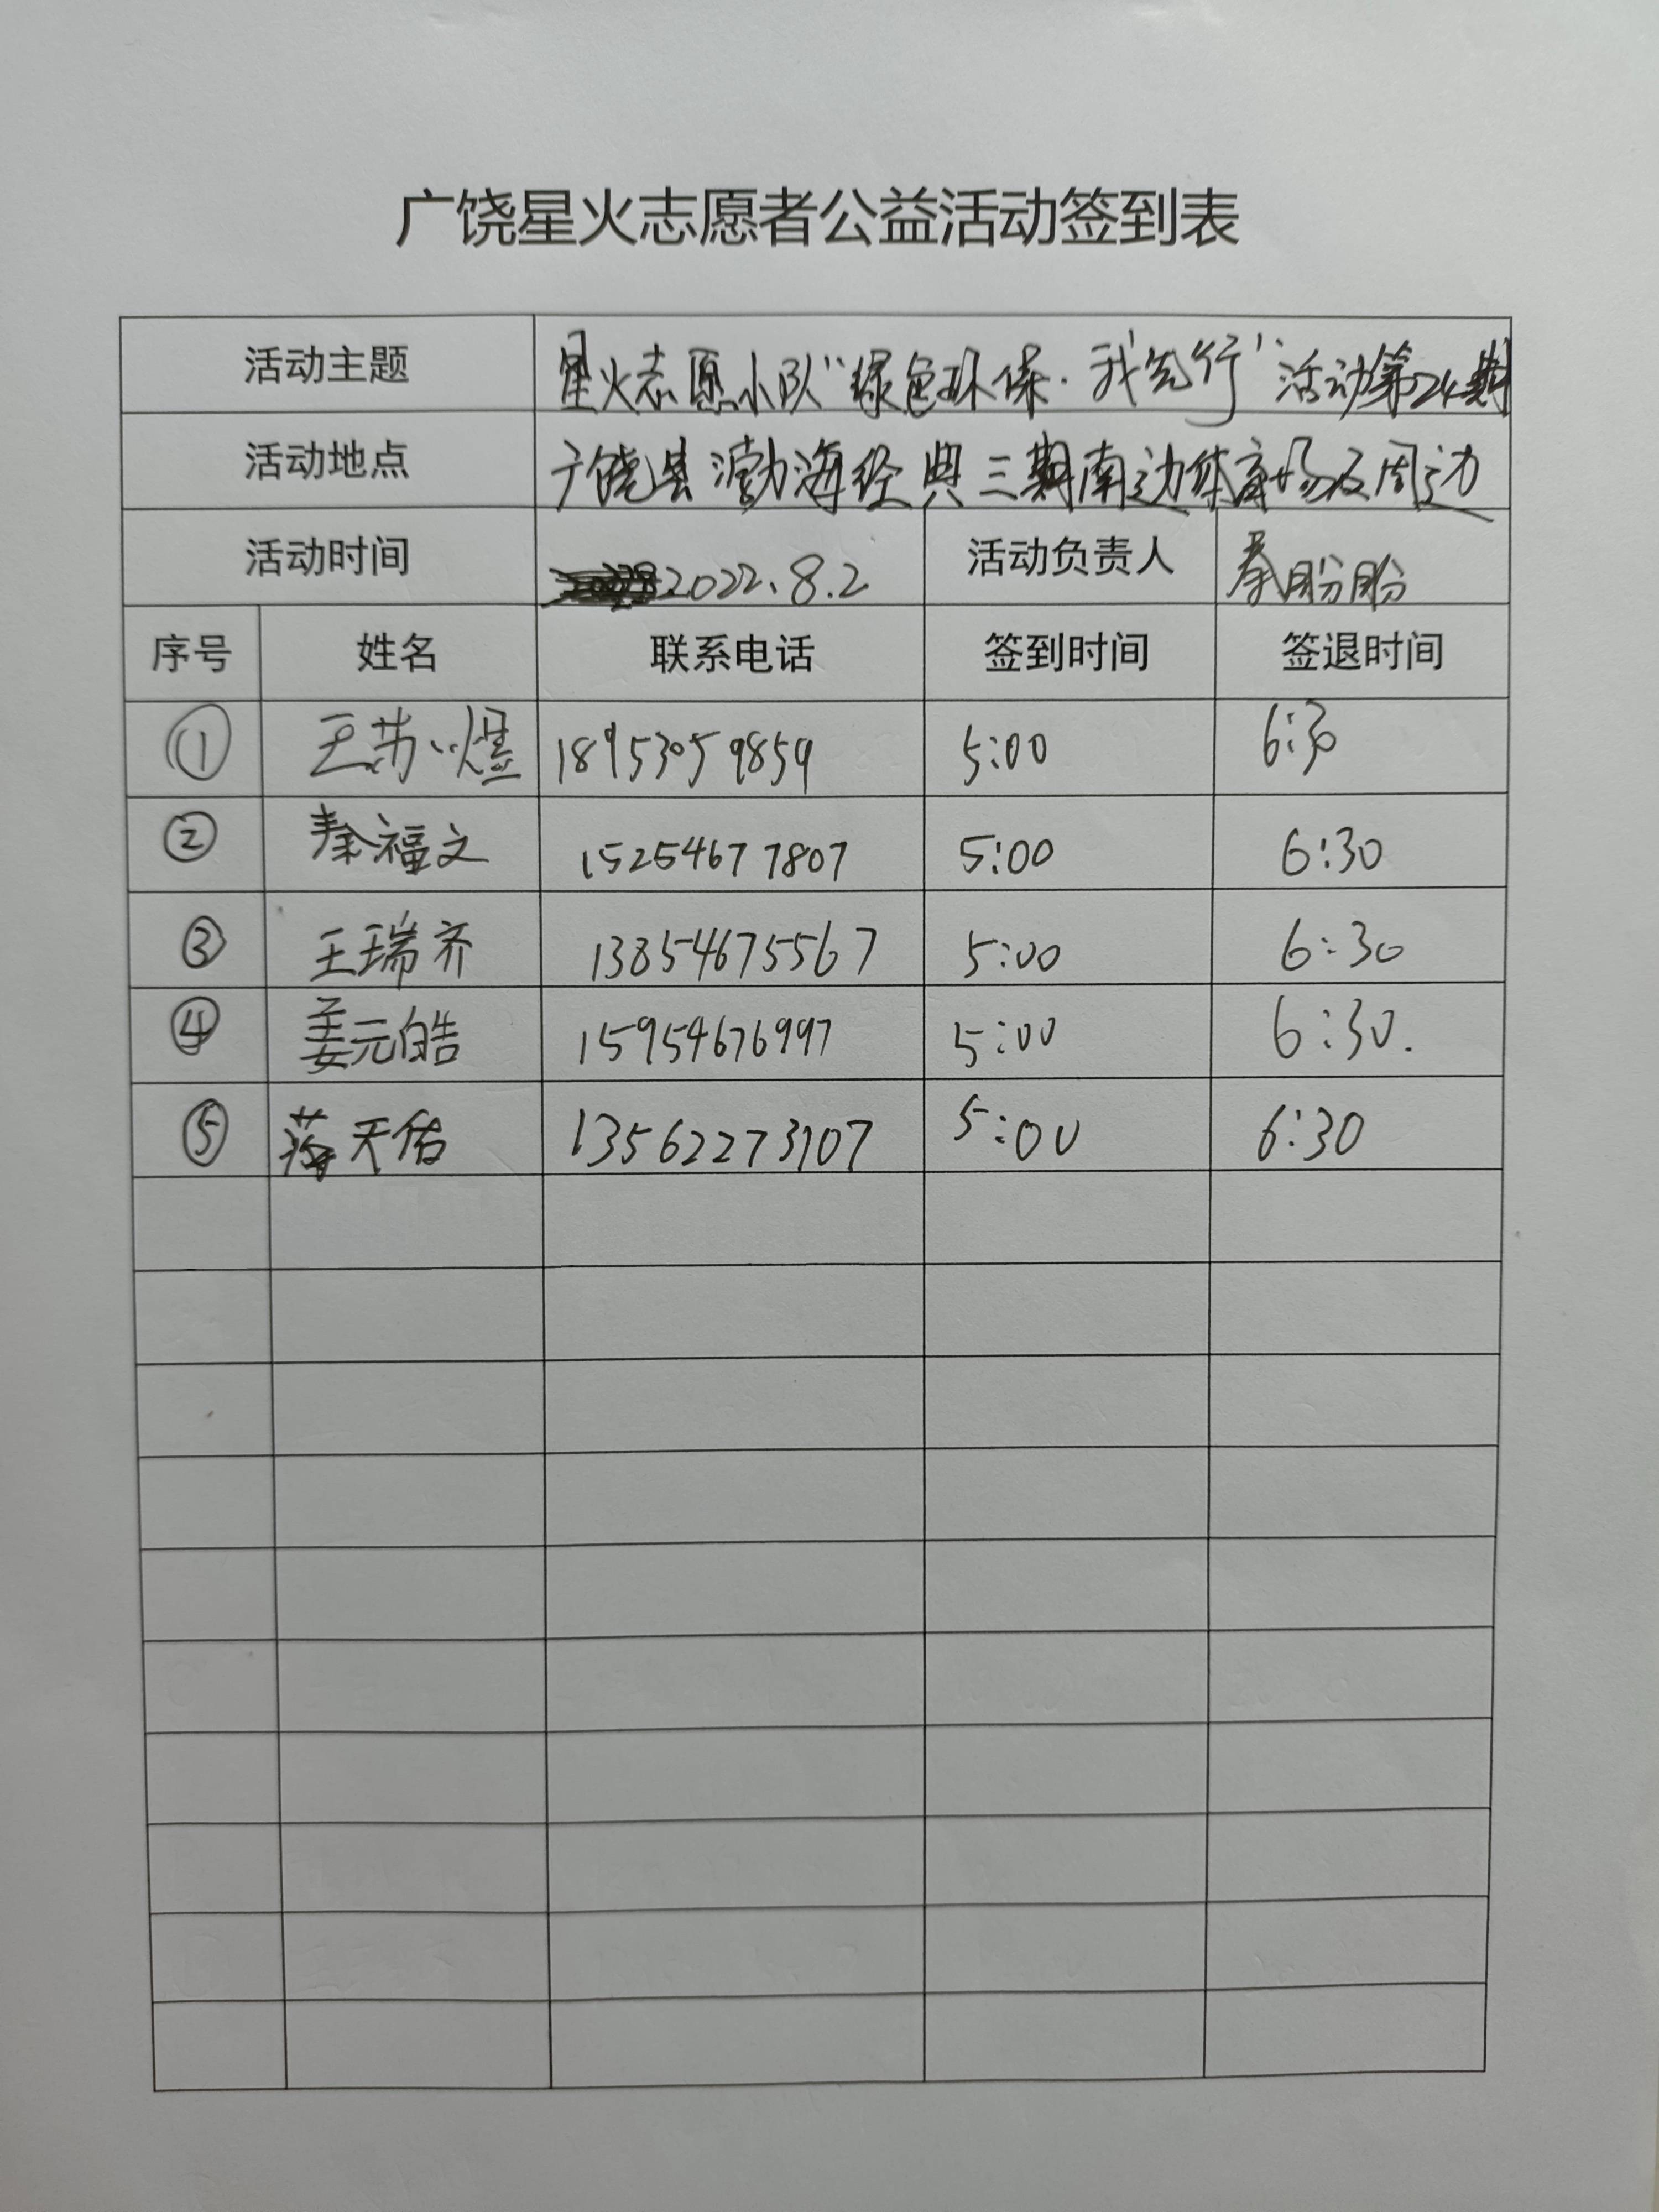 广饶星火志愿者公益活动签到表
活动主题 星火志愿小队“绿色环保·我先行”活动第24期
活动地点 广饶县渤海经典三期南边体育场及周边
活动时间 2022.8.2 活动负责人 秦盼盼
序号 姓名 联系电话 签到时间 签退时间
① 王苏煜 18953059859 5:00 6:30
② 秦福文 15254677807 5:00 6:30
③ 王瑞齐 13854675567 5:00 6:30
④ 姜元皓 15954676997 5:00 6:30.
⑤ 天佑 13562273107 5:00 6:30